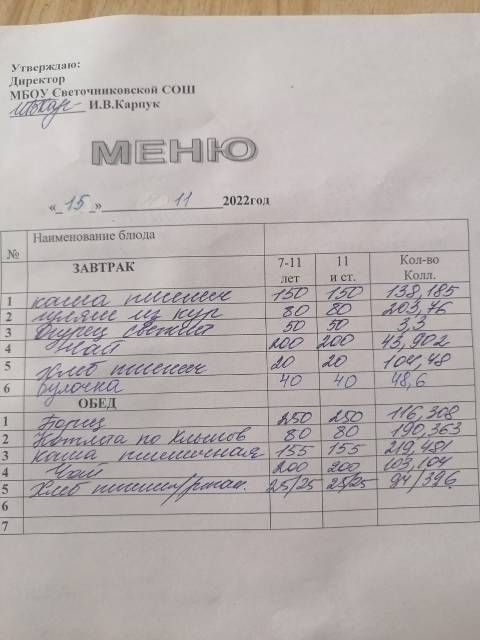 Утверждаю:
Директор
МБОУ Светочниковской СОШ
И.В.Карпук
МЕНЮ
«_15_»_ 11 2022год
№ Наименование блюда
ЗАВТРАК 7-11 лет 11 и ст. Кол-во Колл.
1 каша пшенич 150 150 138,185
2 гуляш из кур 80 80 203,76
3 Огурец свежий 50 50 3,3
4 Чай 200 200 43,902
5 Хлеб пшенич 20 20 104,48
6 Булочка 40 40 48,6
ОБЕД
1 Борщ 250 250 116,308
2 Котлета по 80 80 190,363
3 Каша пшеничная 155 155 219,451
4 Чай 200 200 103,104
5 Хлеб пшенич/ржан. 25/25 25/25 94/396
6
7